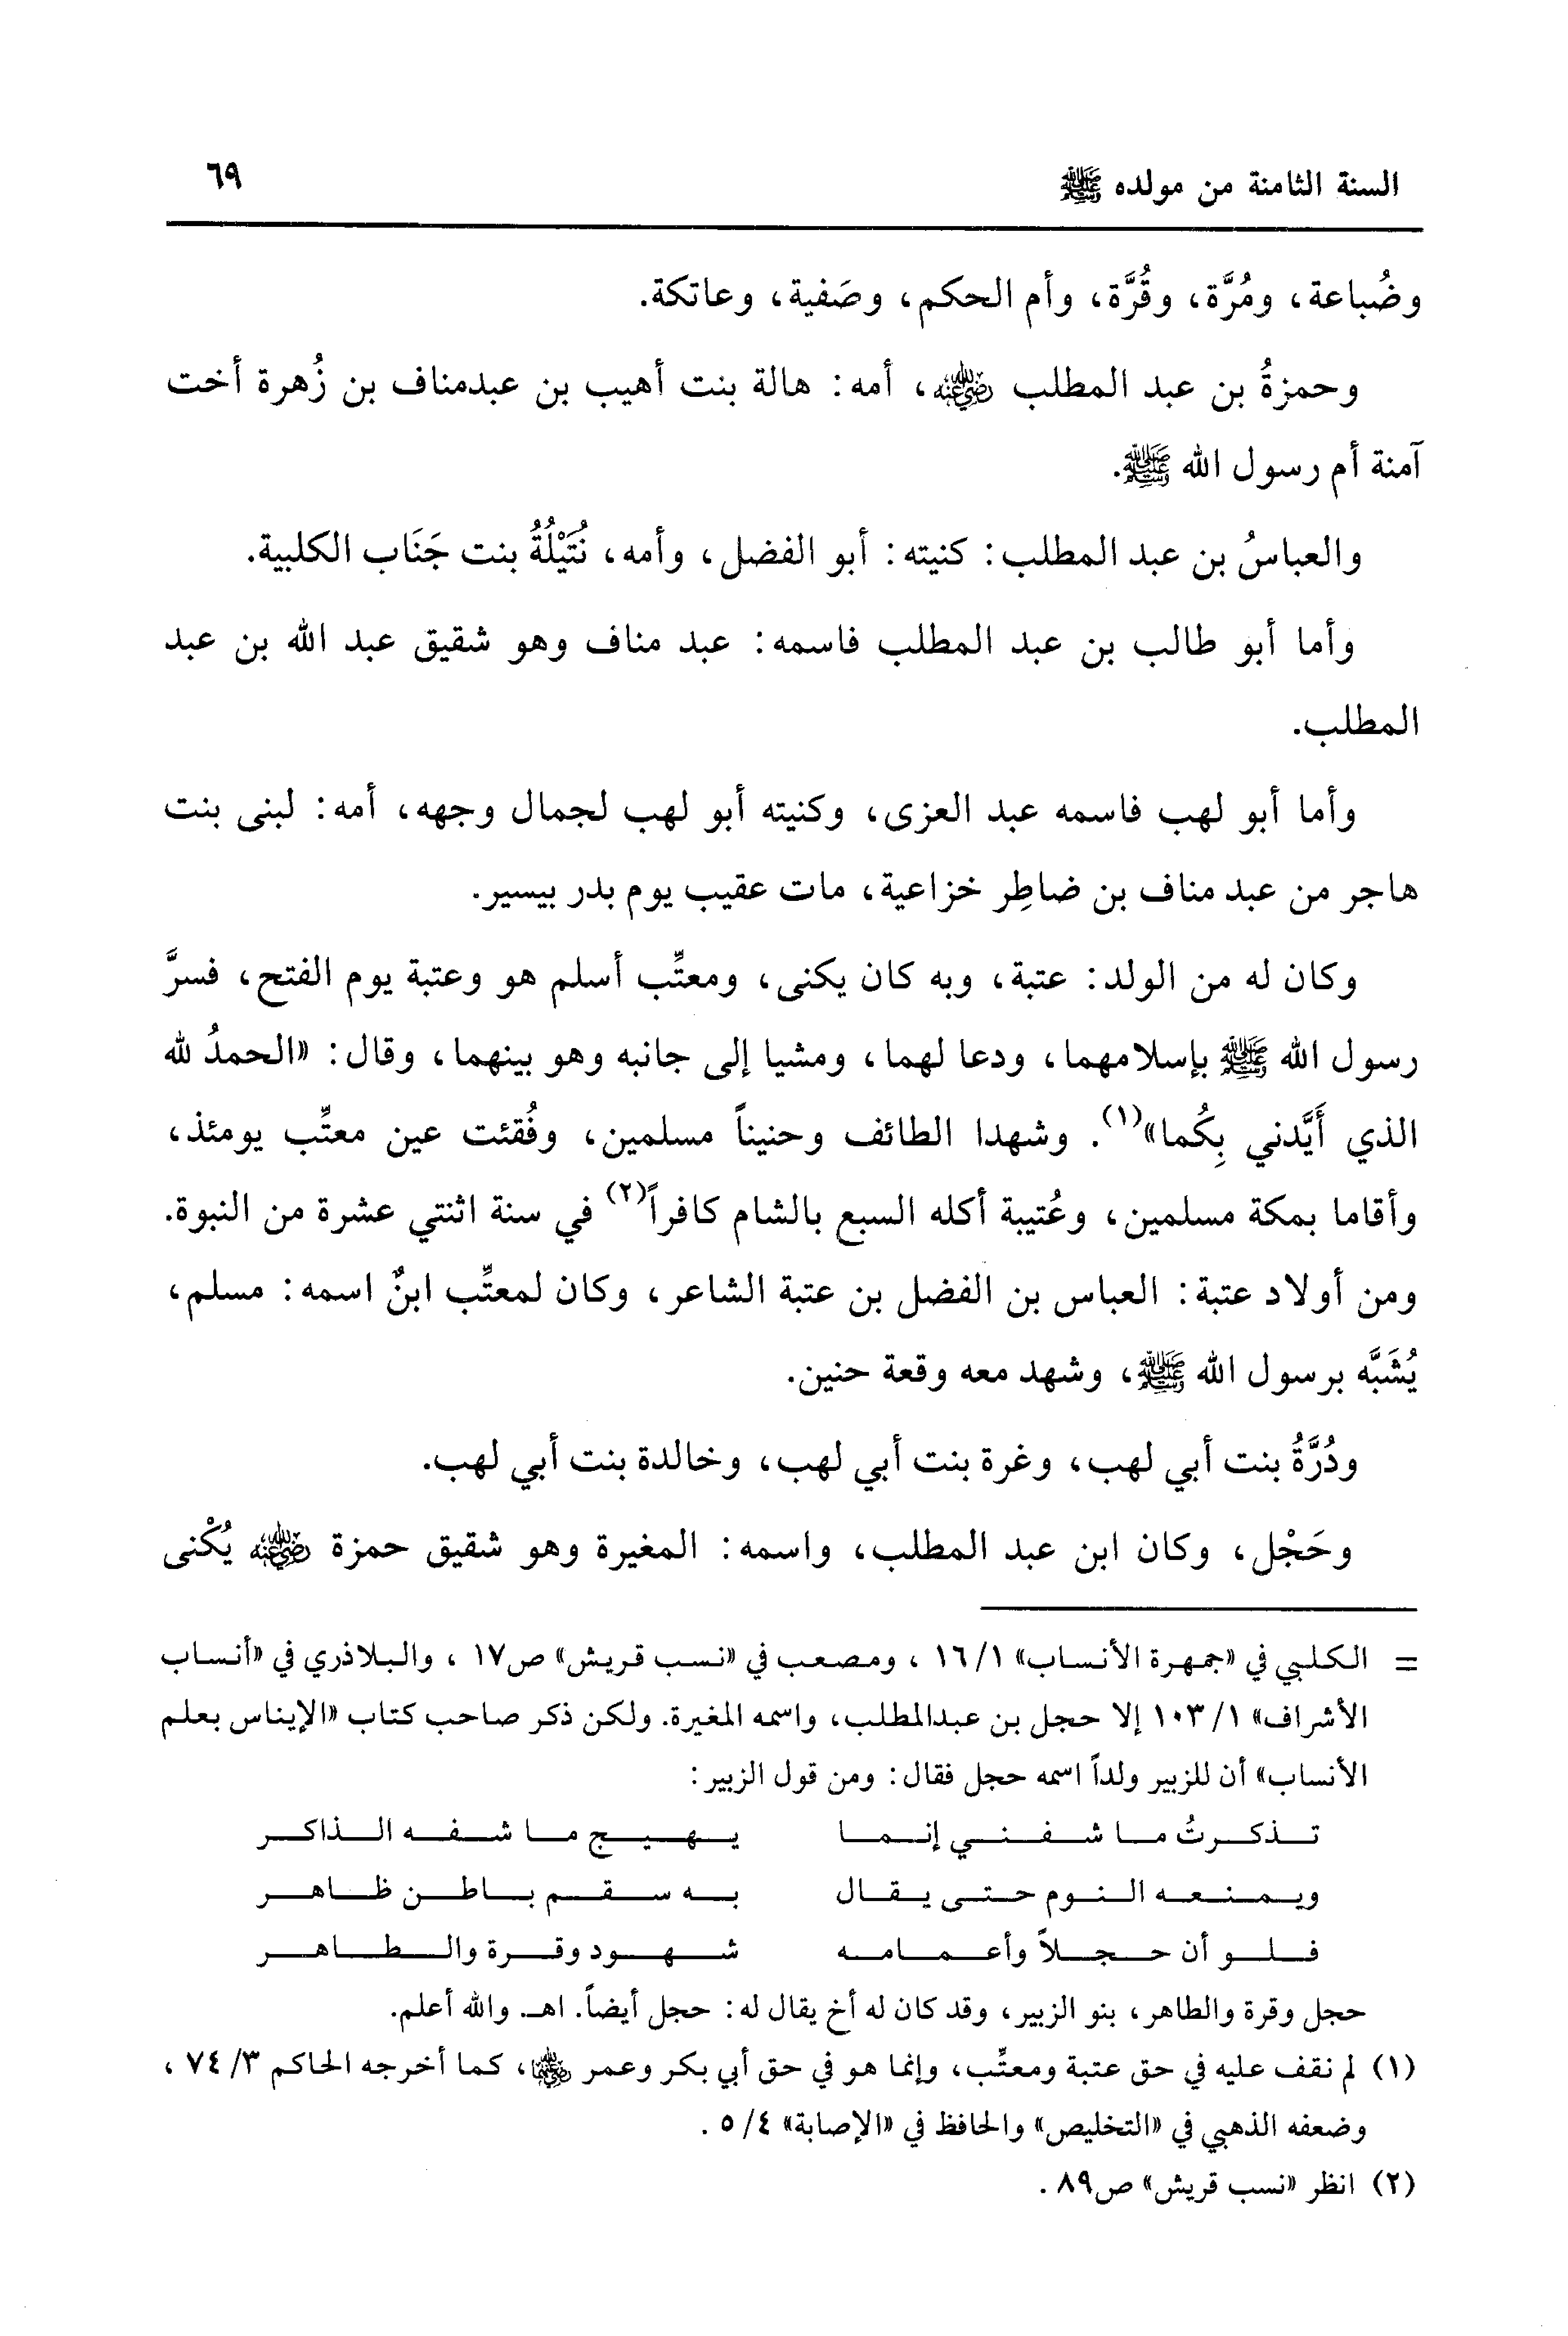 السنة الثامنة من مولده ﷺ ٦٩
وضُباعة، ومُرَّة، وقُرَّة، وأم الحكم، وصَفية، وعاتكة.
وحمزةُ بن عبد المطلب رضي الله عنه، أمه: هالة بنت أهيب بن عبدمناف بن زُهرة أخت
آمنة أم رسول الله ﷺ.
والعباسُ بن عبد المطلب: كنيته: أبو الفضل، وأمه، نُتَيْلُةُ بنت جَنَاب الكلبية.
وأما أبو طالب بن عبد المطلب فاسمه: عبد مناف وهو شقيق عبد الله بن عبد
المطلب.
وأما أبو لهب فاسمه عبد العزى، وكنيته أبو لهب لجمال وجهه، أمه: لبنى بنت
هاجر من عبد مناف بن ضاطِر خزاعية، مات عقيب يوم بدر بيسير.
وكان له من الولد: عتبة، وبه كان يكنى، ومعتِّب أسلم هو وعتبة يوم الفتح، فسرَّ
رسول الله ﷺ بإسلامهما، ودعا لهما، ومشيا إلى جانبه وهو بينهما، وقال: «الحمدُ لله
الذي أَيَّدني بِكُما»(١). وشهدا الطائف وحنيناً مسلمين، وفُقئت عين معتِّب يومئذ،
وأقاما بمكة مسلمين، وعُتيبة أكله السبع بالشام كافراً(٢) في سنة اثنتي عشرة من النبوة.
ومن أولاد عتبة: العباس بن الفضل بن عتبة الشاعر، وكان لمعتِّب ابنٌ اسمه: مسلم،
يُشَبَّه برسول الله ﷺ، وشهد معه وقعة حنين.
ودُرَّةُ بنت أبي لهب، وغرة بنت أبي لهب، وخالدة بنت أبي لهب.
وحَجْل، وكان ابن عبد المطلب، واسمه: المغيرة وهو شقيق حمزة رضي الله عنه يُكْنى
= الكلبي في «جمهرة الأنساب» ١/ ١٦ ، ومصعب في «نسب قريش» ص١٧ ، والبلاذري في «أنساب
الأشراف» ١/ ١٠٣ إلا حجل بن عبدالمطلب، واسمه المغيرة. ولكن ذكر صاحب كتاب «الإيناس بعلم
الأنساب» أن للزبير ولداً اسمه حجل فقال: ومن قول الزبير:
تذكرتُ ما شفني إنما يهيج ما شفه الذاكر
ويمنعه النوم حتى يقال به سقم باطن ظاهر
فلو أن حجلاً وأعمامه شهود وقرة والطاهر
حجل وقرة والطاهر، بنو الزبير، وقد كان له أخ يقال له: حجل أيضاً. اهـ. والله أعلم.
(١) لم نقف عليه في حق عتبة ومعتِّب، وإنما هو في حق أبي بكر وعمر رضي الله عنهما، كما أخرجه الحاكم ٣/ ٧٤ ،
وضعفه الذهبي في «التخليص» والحافظ في «الإصابة» ٤/ ٥ .
(٢) انظر «نسب قريش» ص٨٩ .